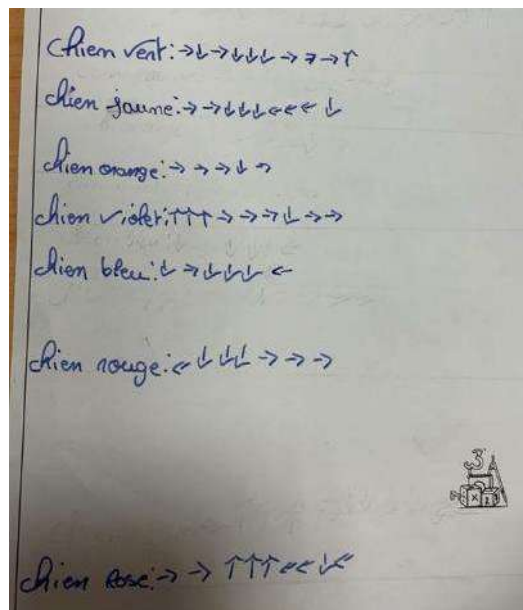 Chien vert:→↓→↓↓↓→→→↑
chien jaune:→→↓↓↓←←←↓
chien orange:→→→↓→
chien violet:↑↑↑→→→↓→→
chien bleu:↓→↓↓↓←
chien rouge:←↓↓↓→→→
3
chien Rose:→→↑↑↑←←↓←